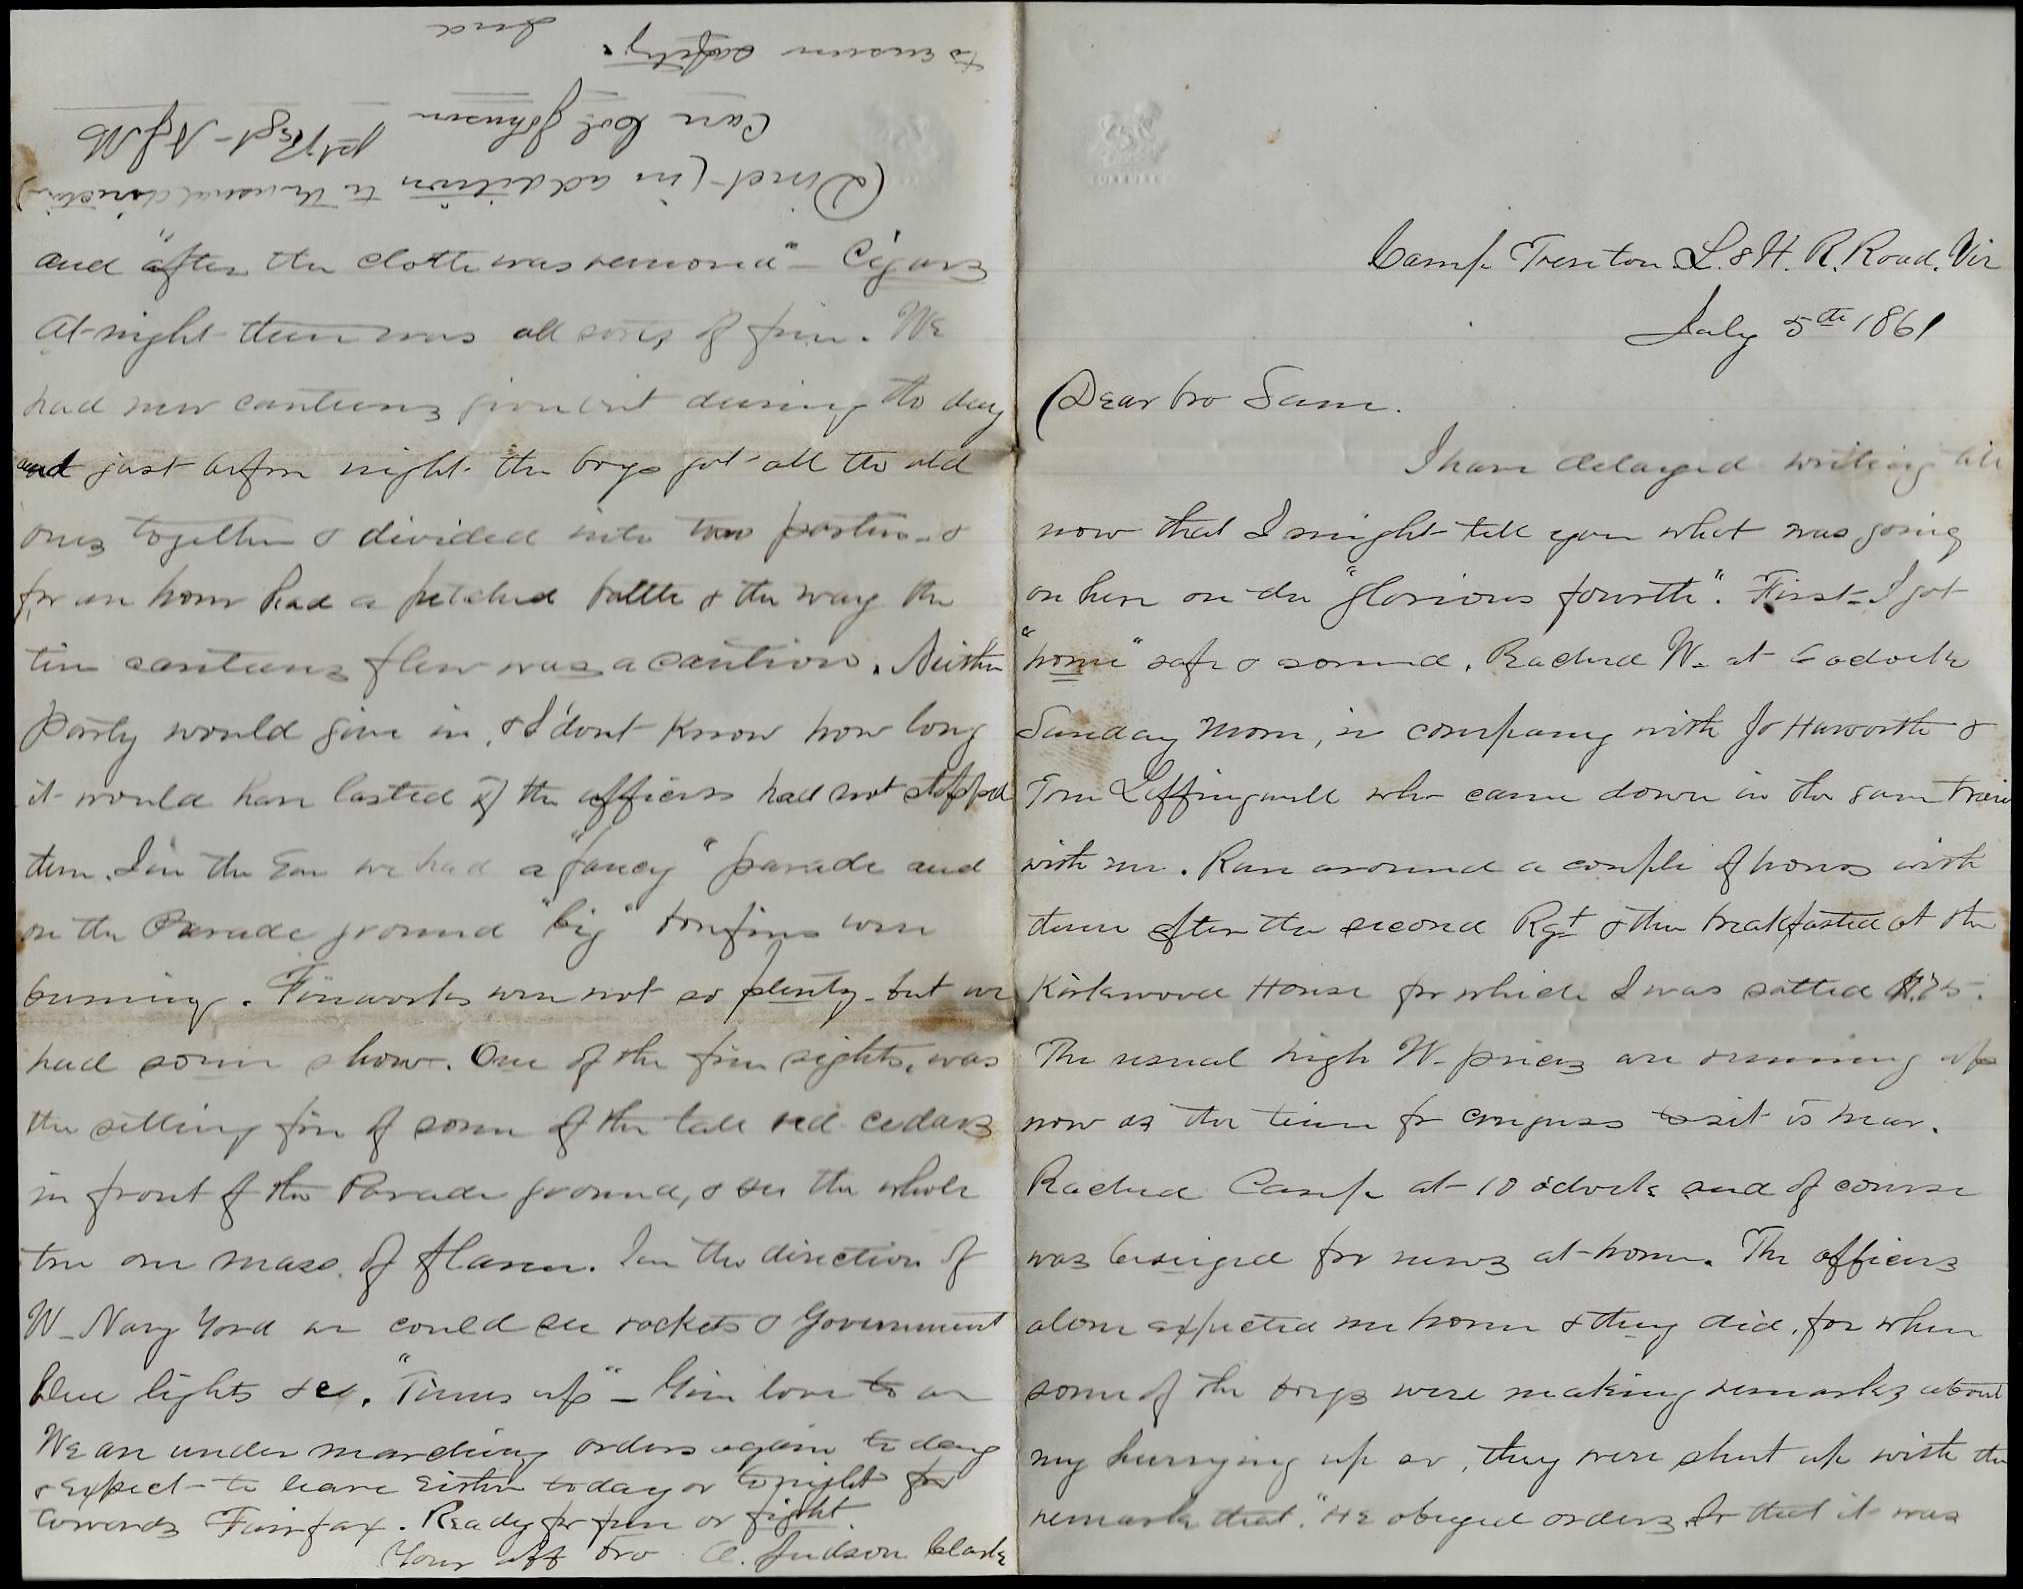 Camp Trenton L. & H. R. Road. Vir
July 5th 1861
Dear bro Sam.
I have delayed writing till
now that I might tell you what was going
on here on the "glorious fourth". First I got
"home" safe & sound. Reached W. at 6 oclock
Sunday morn, in company with Jo Haworth &
Tom Leffingwell who came down in the same train
with me. Ran around a couple of hours with
them after the second Rgt & then breakfasted at the
Kirkwood House for which I was salted
The usual high W. prices are running up
now as the time for congress to sit is near.
Reached Camp at 10 oclock and of course
was besieged for news at home. The officers
alone expected me home & they did, for when
some of the boys were making remarks about
my hurrying up so, they were shut up with the
remark that "He obeyed orders & that it was
and "after the clothe was removed" - Cigars
At night there was all sorts of fun. We
had new canteens given out during the day
and just before night the boys got all the old
ones together & divided into two parties &
for an hour had a pitched battle & the way the
tin canteens flew was a caution. Neither
party would give in, & I dont know how long
it would have lasted if the officers had not stopped
them. In the Eve we had a "fancy" parade and
on the Parade ground "big" bonfires were
burning. Fireworks were not so plenty - but we
had some show. One of the fine sights, was
the setting fire of some of the tall red cedars
in front of the Parade ground, & see the whole
tree one mass of flame. In the direction of
W. Navy Yard we could see rockets & Government
blue lights &c. "Times up" - Give love to all
We are under marching orders again to day
& expect to leave either today or tonight for
towards Fairfax. Ready for fun or fight.
Your aff bro A. Judson Clark
(Direct (in addition to the usual direction)
Care Col Johnson 1st Regt N J M
to ensure safety.
Jud